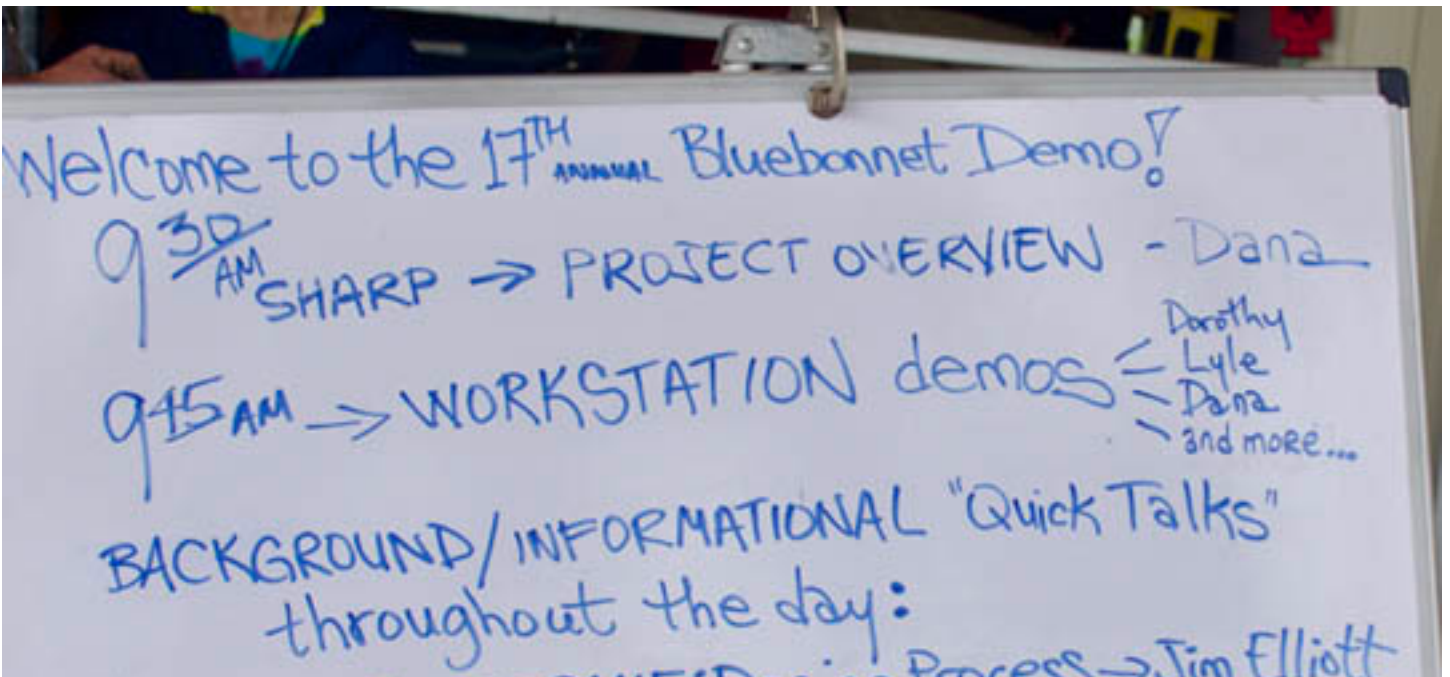 Welcome to the 17TH ANNUAL Bluebonnet Demo!
9 30 AM SHARP → PROJECT OVERVIEW - Dana
9 45 AM → WORKSTATION demos
Dorothy
Lyle
Dana
and more...
BACKGROUND/INFORMATIONAL "Quick Talks"
throughout the day:
Process → Jim Elliott